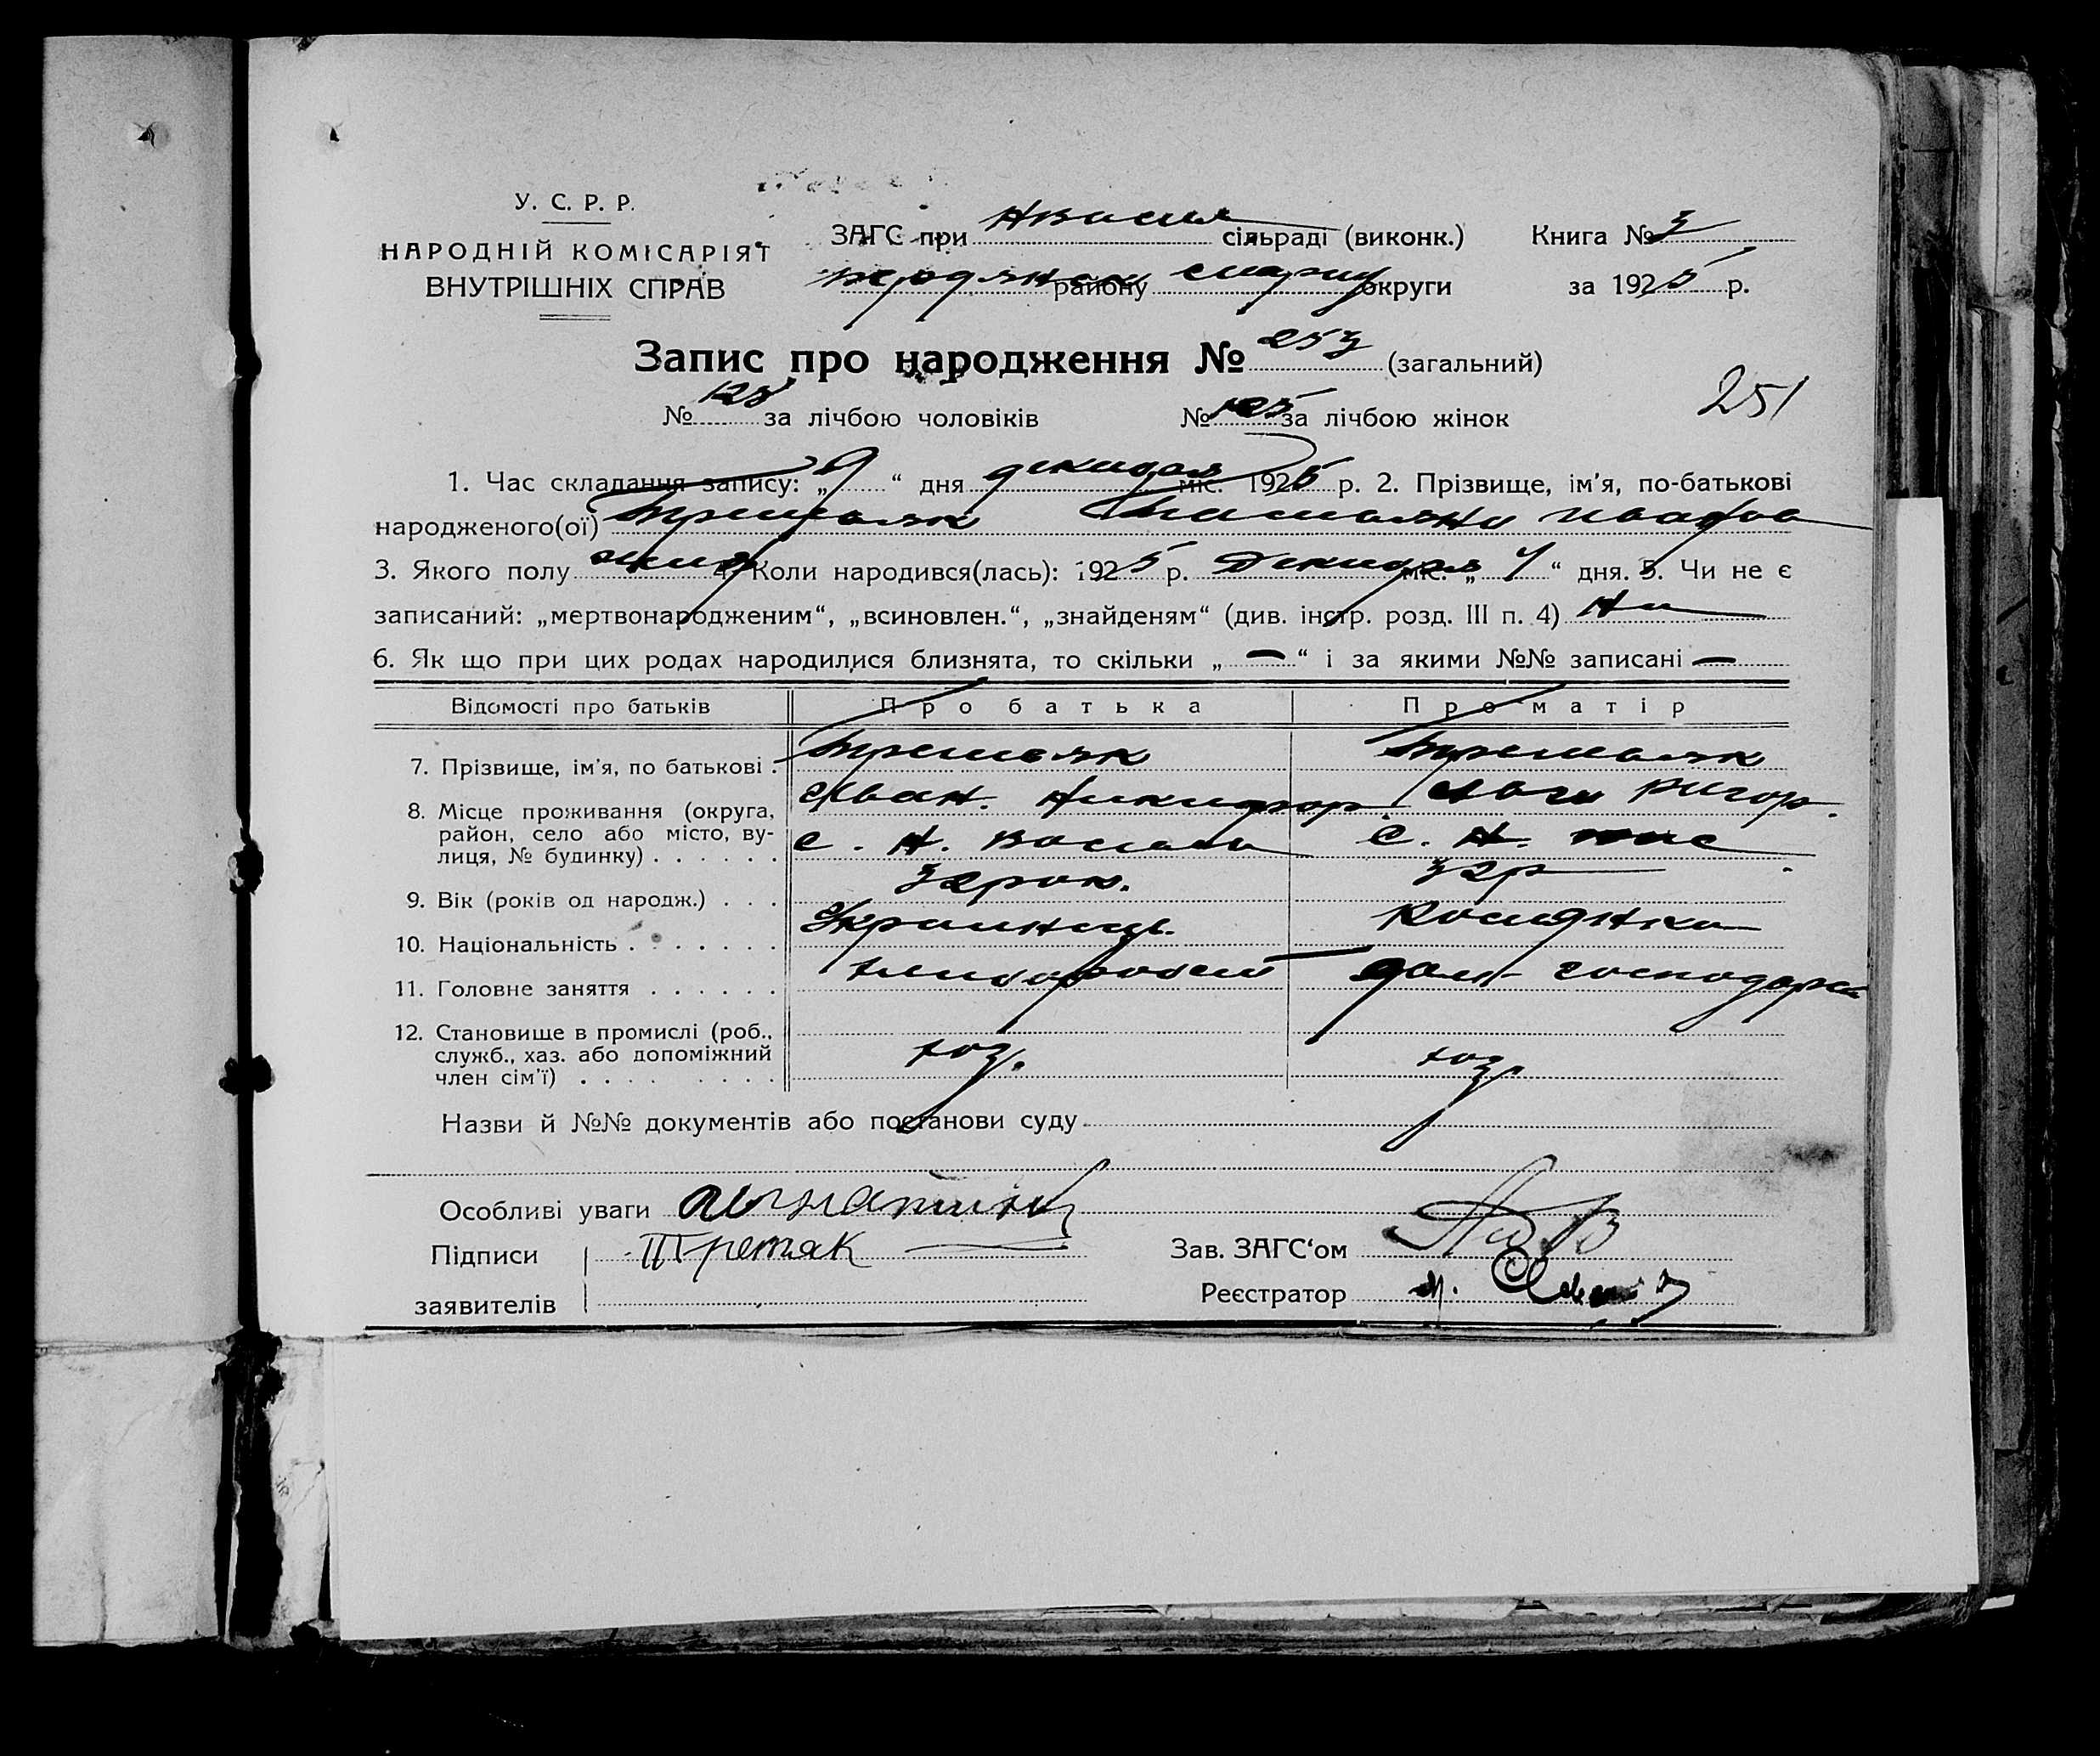 У. С. Р. Р.
НАРОДНІЙ КОМІСАРІЯТ
ВНУТРІШНІХ СПРАВ
ЗАГС при сільраді (виконк.) Книга № 3
району округи за 1925 р.
Запис про народження № 253 (загальний)
№ 128 за лічбою чоловіків № 125 за лічбою жінок
251
1. Час складання запису: „ 9 “ дня декабря міс. 1925 р. 2. Прізвище, ім'я, по-батькові
народженого(ої) Третьяк Татьяна Иванов
3. Якого полу жин 4. Коли народився(лась): 1925 р. Декабря міс. „ “ дня. 5. Чи не є
записаний: „мертвонародженим“, „всиновлен.“, „знайденям“ (див. інстр. розд. III п. 4) Ни
6. Як що при цих родах народилися близнята, то скільки „ — “ і за якими №№ записані —
Відомості про батьків Про батька Про матір
7. Прізвище, ім'я, по батькові . Третьяк Третьяк
Иван. Никифор. Ригор.
8. Місце проживання (округа, район, село або місто, вулиця, № будинку) . . . . . . с. Н. с. Н.
9. Вік (років од народж.) . . . 32 рок. 32 р
10. Національність . . . . . . . Украинець
11. Головне заняття . . . . . . хлибороб дом господарка
12. Становище в промислі (роб., служб., хаз. або допоміжний член сім'ї) . . . . . . . . . хаз. хаз
Назви й №№ документів або постанови суду
Особливі уваги
Підписи Третяк Зав. ЗАГС‘ом
заявителів Реєстратор